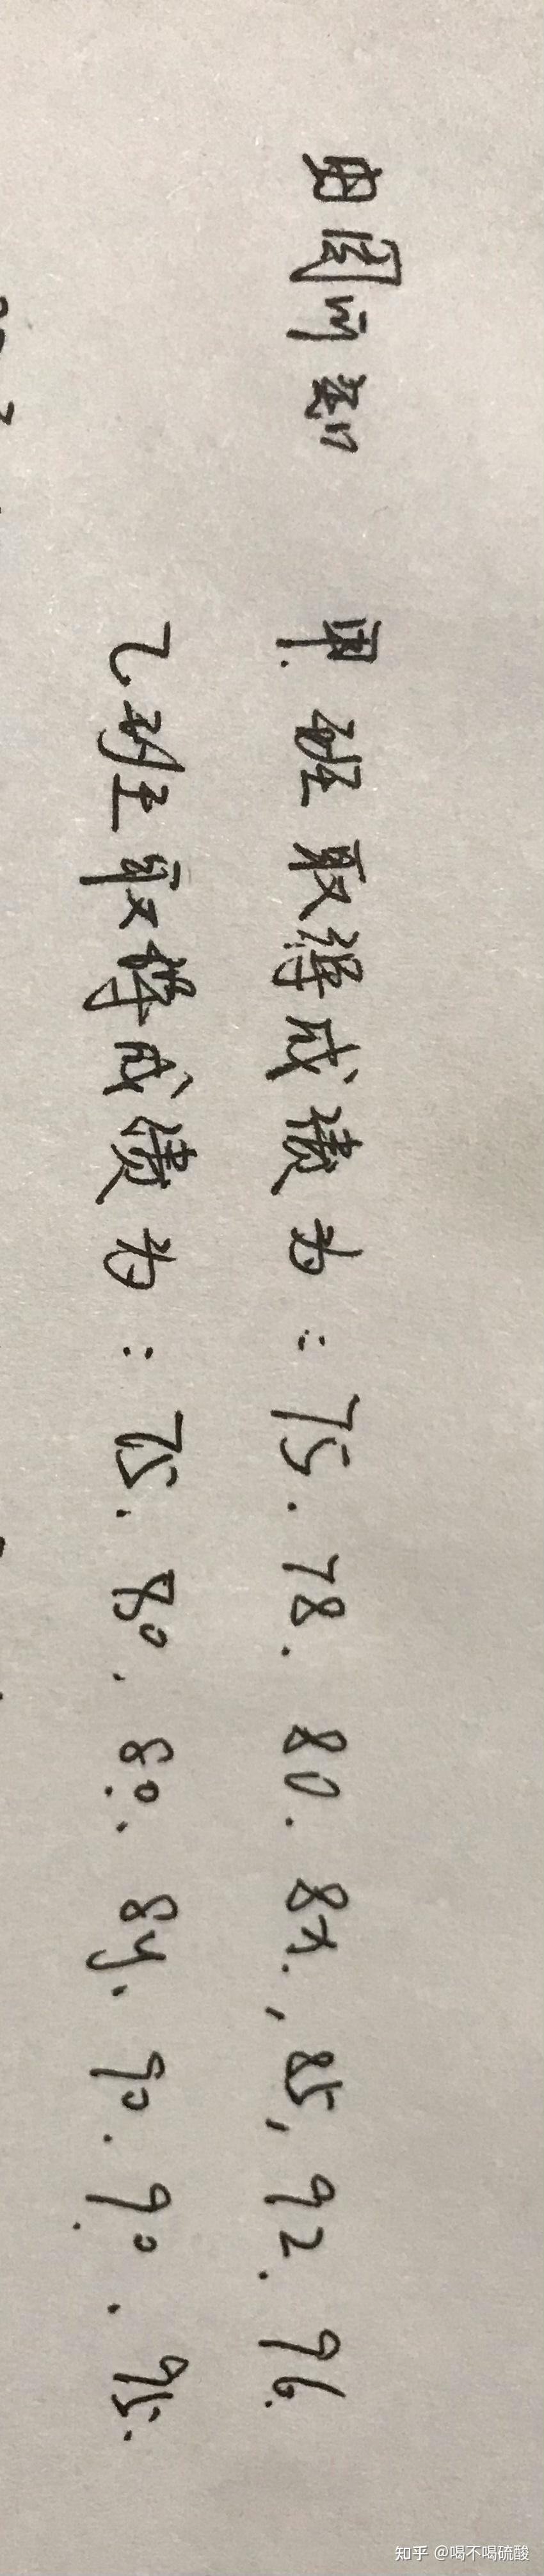 由图可知 甲.班取得成绩为：75.78.80.8x.,85,92.96.
乙班取得成绩为：75.80.80.8y.90.90.95.
知乎 @喝不喝硫酸